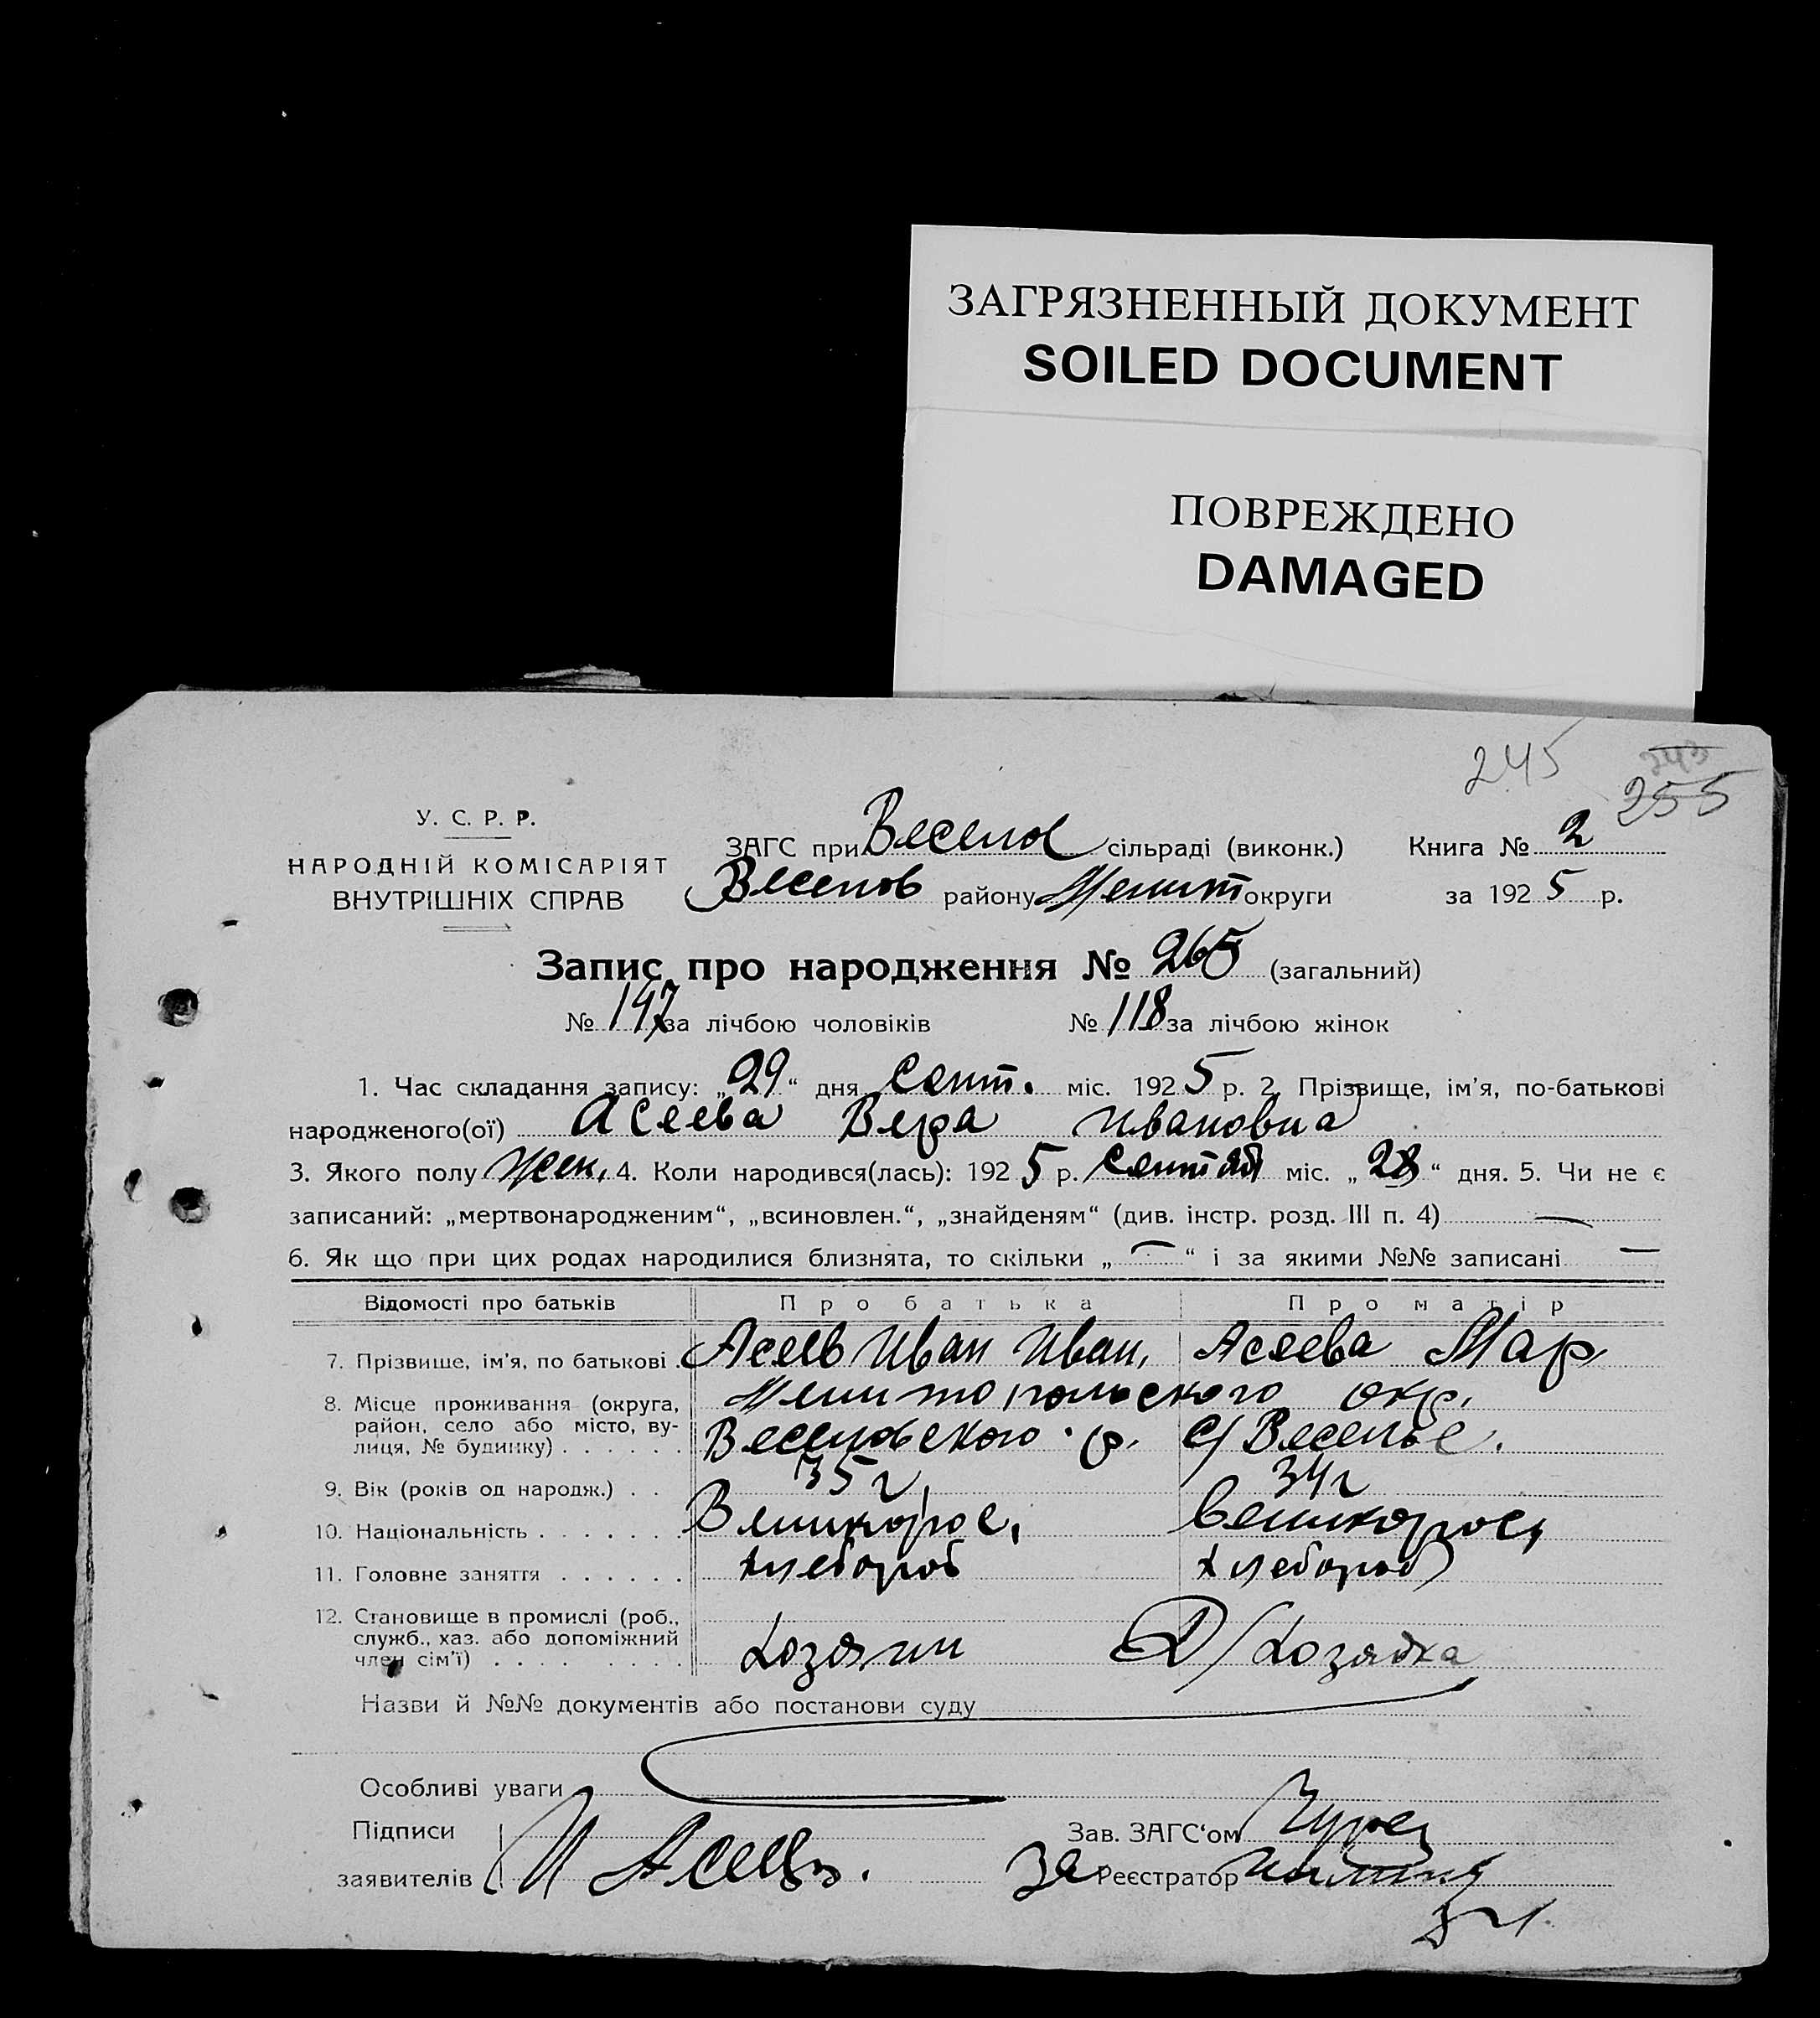 ЗАГРЯЗНЕННЫЙ ДОКУМЕНТ
SOILED DOCUMENT
ПОВРЕЖДЕНО
DAMAGED
245 243
255
У. С. Р. Р.
НАРОДНІЙ КОМІСАРІЯТ
ВНУТРІШНІХ СПРАВ
ЗАГС при Весело сільраді (виконк.) Книга № 2
Веселов району Мелит округи за 1925 р.
Запис про народження № 265 (загальний)
№ 147 за лічбою чоловіків № 118 за лічбою жінок
1. Час складання запису: „29“ дня сент. міс. 1925 р. 2. Прізвище, ім'я, по-батькові
народженого(ої) Асеева Вера Ивановна
3. Якого полу жен. 4. Коли народився(лась): 1925 р. сентяб міс. „28“ дня. 5. Чи не є
записаний: „мертвонародженим“, „всиновлен.“, „знайденям“ (див. інстр. розд. III п. 4) —
6. Як що при цих родах народилися близнята, то скільки „—“ і за якими №№ записані —
Відомості про батьків Про батька Про матір
7. Прізвище, ім'я, по батькові . Асеев Иван Иван. Асеева Мар
8. Місце проживання (округа, район, село або місто, вулиця, № будинку) . . . . . . Мелитопольского окр.
Веселовского р. с/ Веселое.
9. Вік (років од народж.) . . 35 г. 34 г
10. Національність . . . . . . . Великорос. великорос,
11. Головне заняття . . . . . . хлебороб хлебороб
12. Становище в промислі (роб., служб., хаз. або допоміжний член сім'ї) . . . . . . . . хозяин Д/хозяйка
Назви й №№ документів або постанови суду
Особливі уваги
Підписи
заявителів И Асеев.
Зав. ЗАГС'ом
За Реєстратор